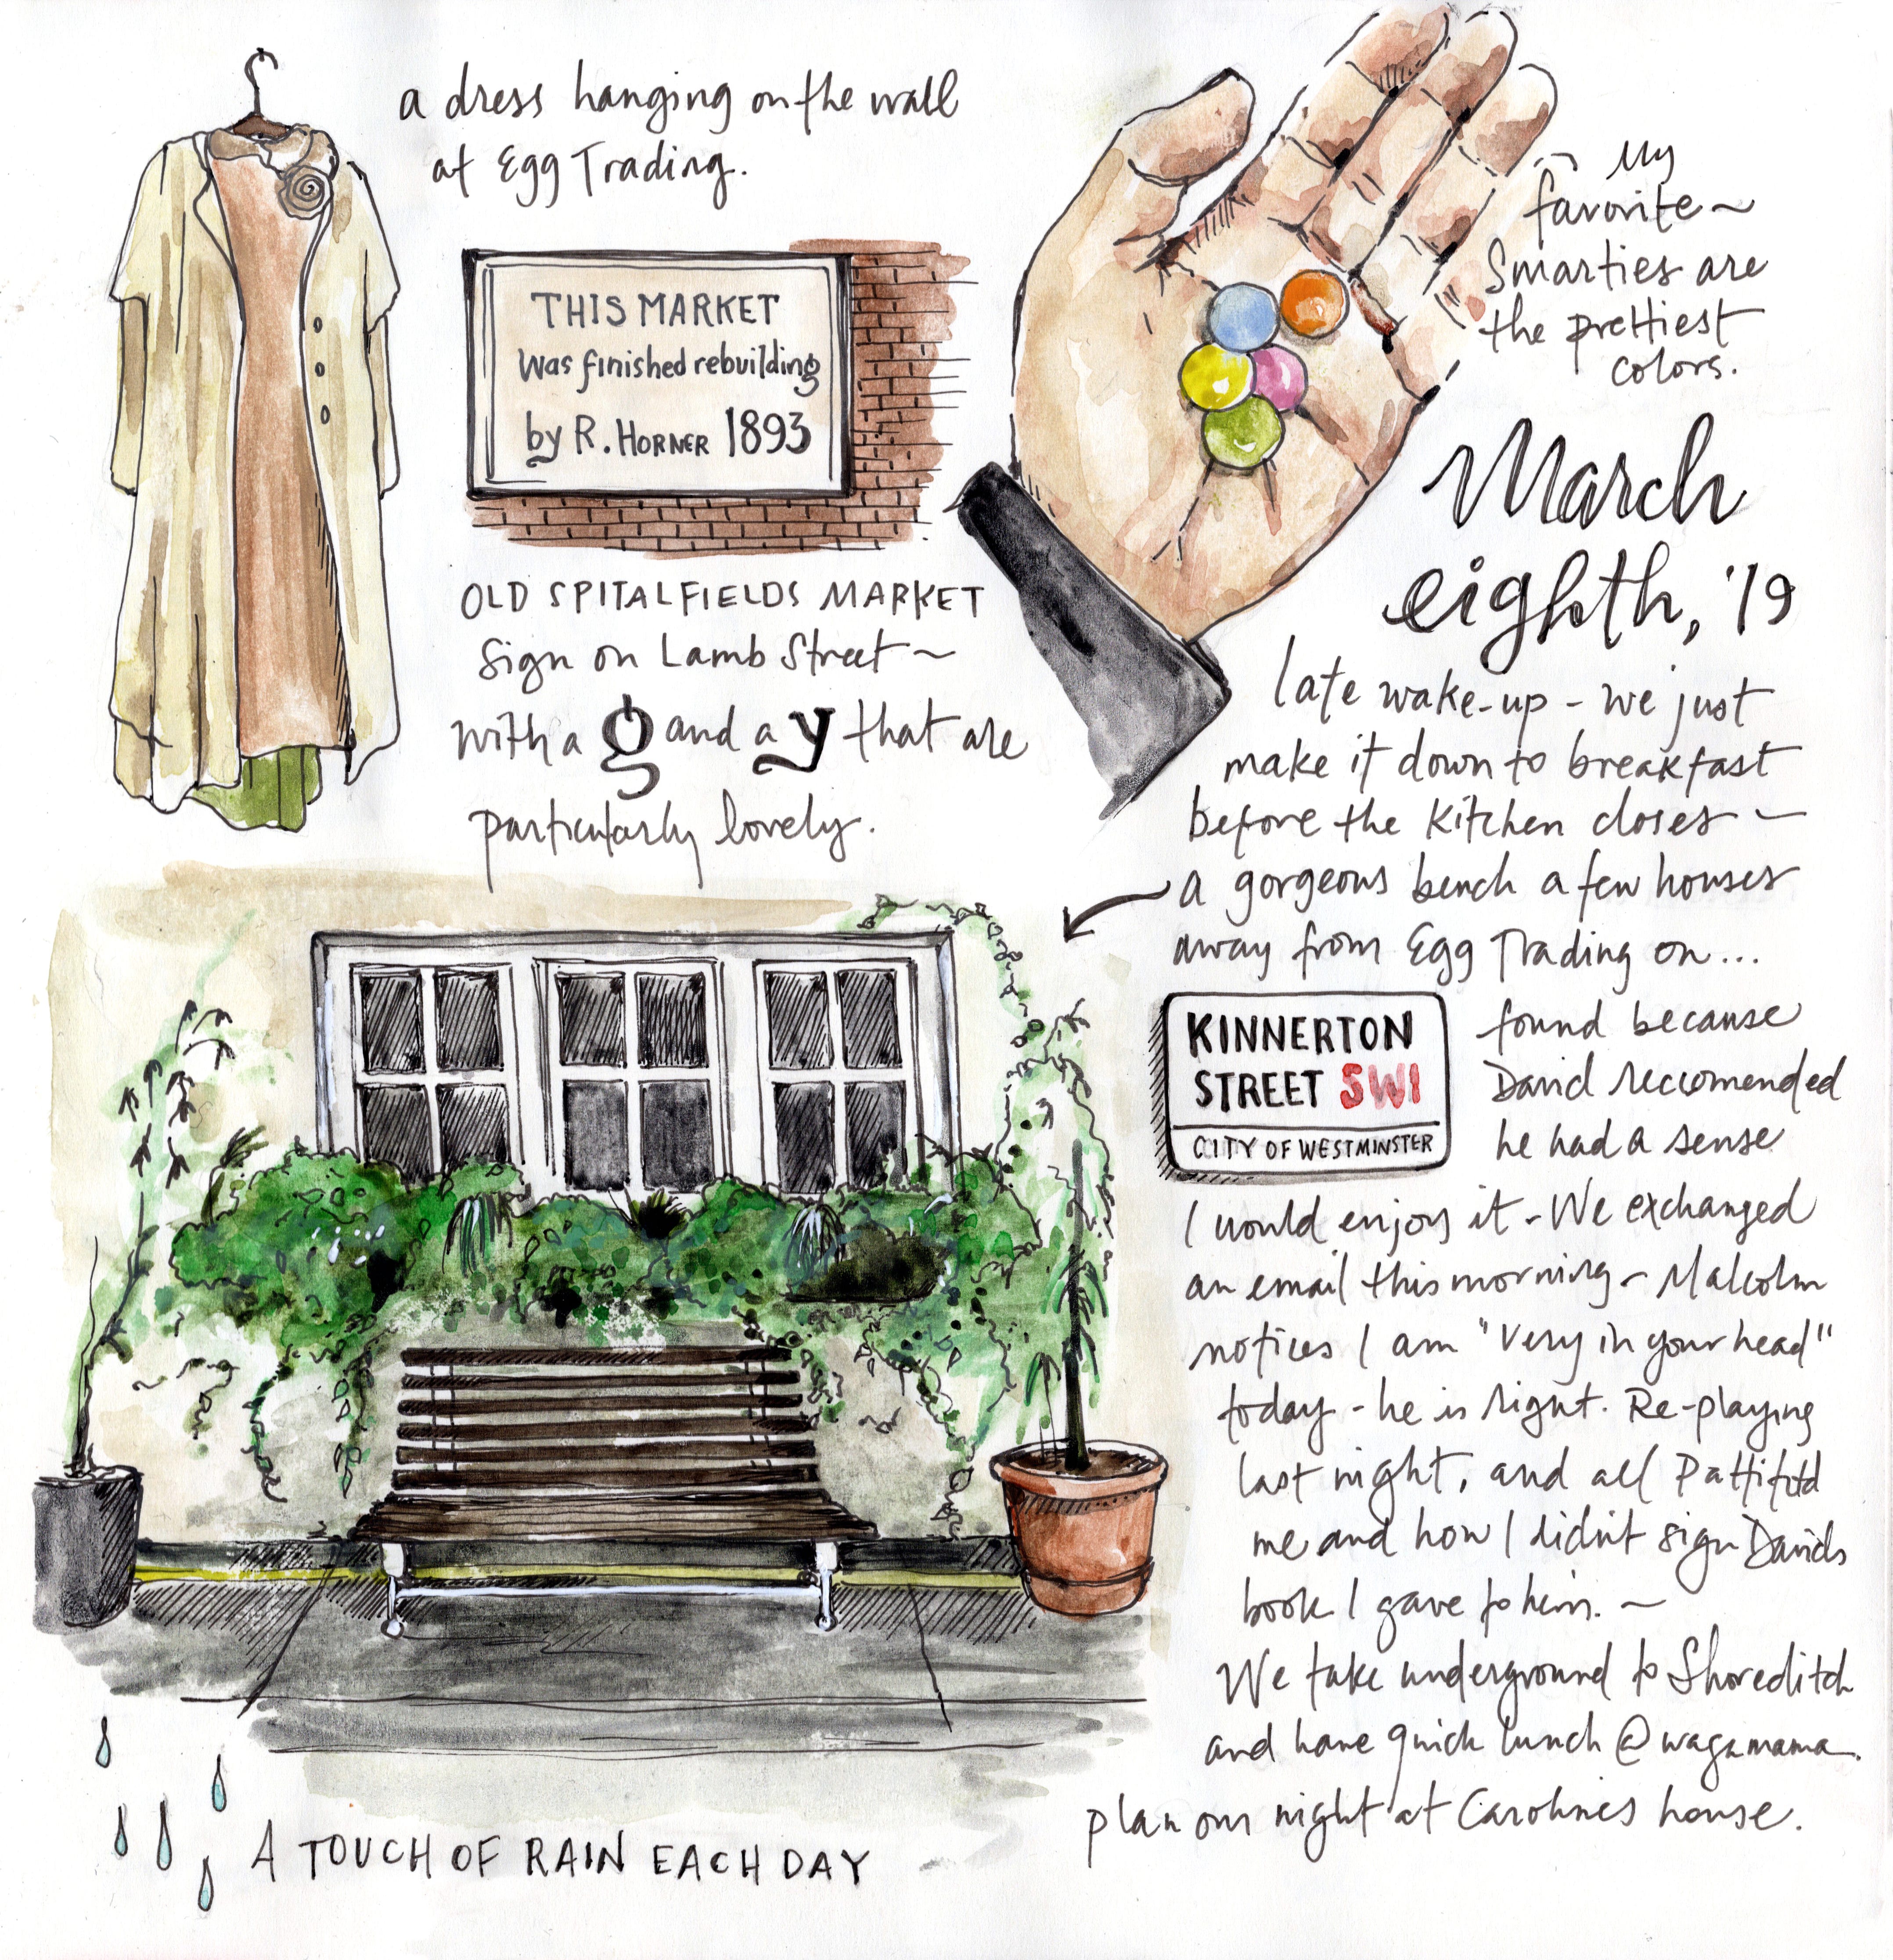 a dress hanging on the wall
at Egg Trading.
THIS MARKET
was finished rebuilding
by R. HORNER 1893
OLD SPITALFIELDS MARKET
sign on Lamb Street ~
with a g and a y that are
particularly lovely.
My
favorite ~
Smarties are
the prettiest
colors.
March
eighth, '19
late wake-up - we just
make it down to breakfast
before the kitchen closes —
a gorgeous bench a few houses
away from Egg Trading on...
KINNERTON
STREET SW1
CITY OF WESTMINSTER
found because
David reccomended
he had a sense
I would enjoy it - We exchanged
an email this morning - Malcolm
notices I am "very in your head"
today - he is right. Re-playing
last night, and all Patti told
me and how I didn't sign Davids
book I gave to him. ~
We take underground to Shoreditch
and have quick lunch @ wagamama.
plan our night at Carolines house.
A TOUCH OF RAIN EACH DAY